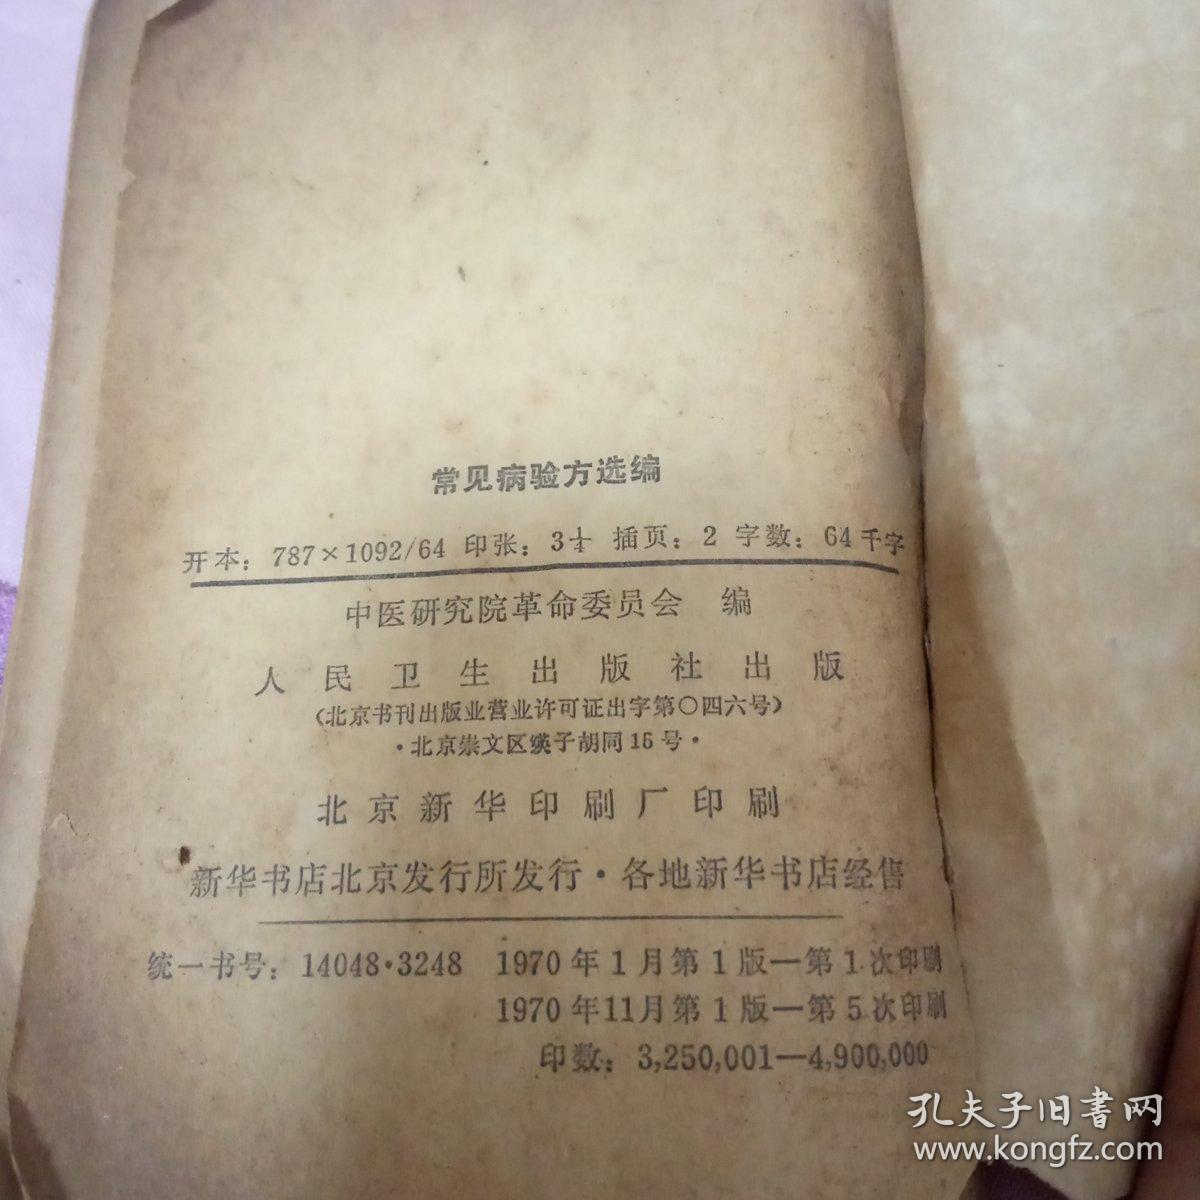 常见病验方选编
开本：787×1092/64 印张：3¼ 插页：2 字数：64千字
中医研究院革命委员会 编
人民卫生出版社出版
（北京书刊出版业营业许可证出字第〇四六号）
·北京崇文区䃼子胡同15号·
北京新华印刷厂印刷
新华书店北京发行所发行·各地新华书店经售
统一书号：14048·3248 1970年1月第1版—第1次印刷
1970年11月第1版—第5次印刷
印数：3,250,001—4,900,000
孔夫子旧书网
www.kongfz.com